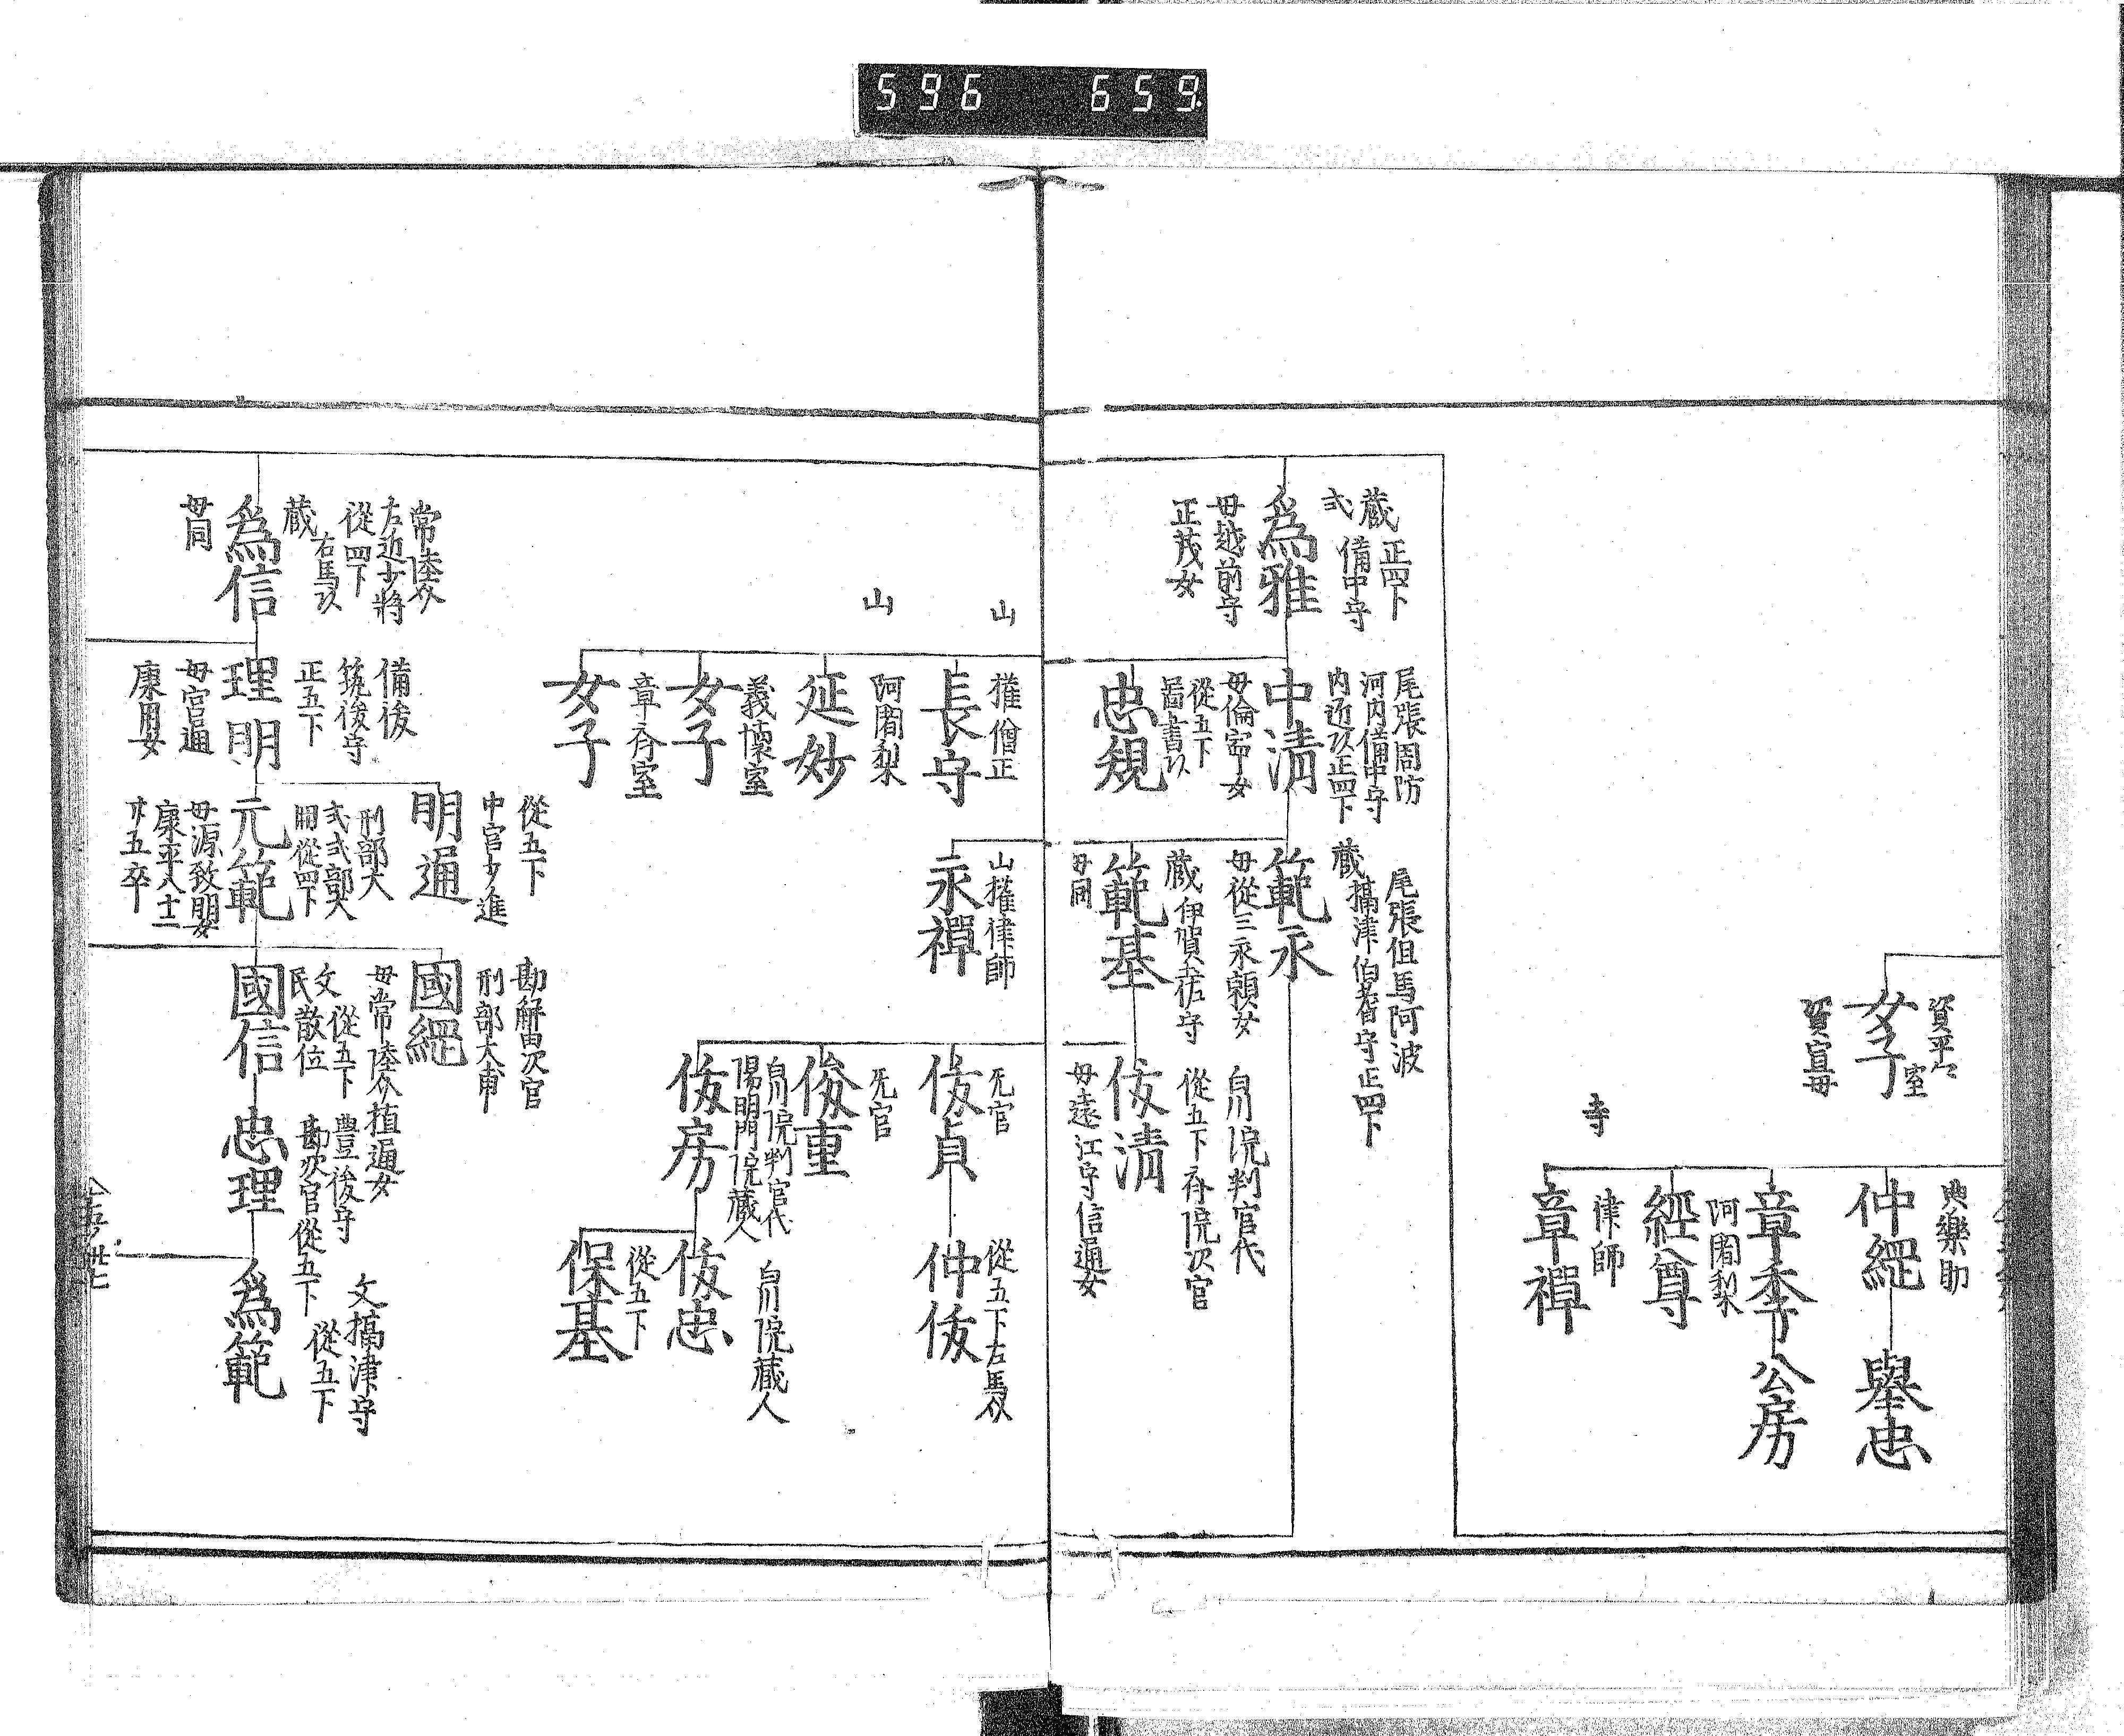 596 659
資平公
女子
室
資宣母
典樂助
仲經
擧忠
章季
公房
阿闍梨
經尊
寺
律師
章禪
蔵 正四下
式 備中守
為雅
母越前守
正茂女
尾張周防
河内備中守
内近以正四下
中淸
母倫寧女
從五下
圖書以
忠規
尾張但馬阿波
蔵 攝津伯耆守正四下
範永
母從三永頼女
蔵 伊賀土佐守
範基
母同
白川院判官代
從五下斉院次官
俊淸
母遠江守信通女
山
權僧正
長守
山
阿闍梨
延妙
義懐室
女子
章斉室
女子
山權律師
永禪
无官
俊貞
從五下右馬允
仲俊
无官
俊重
白川院判官代
陽明門院蔵人
俊房
白川院蔵人
俊忠
從五下
保基
常陸介
左近少將
從四下
右馬以
蔵
為信
母同
備後
筑後守
正五下
理明
母宮通
康用女
從五下
中宮少進
明通
刑部大
式式部大
開從四下
元範
母源致明女
康平八十二
廿五卒
勘解由次官
刑部大甫
國經
母常陸介植通女
文 從五下 豊後守
民散位 勘次官從五下
國信
忠理
文攝津守
從五下
為範